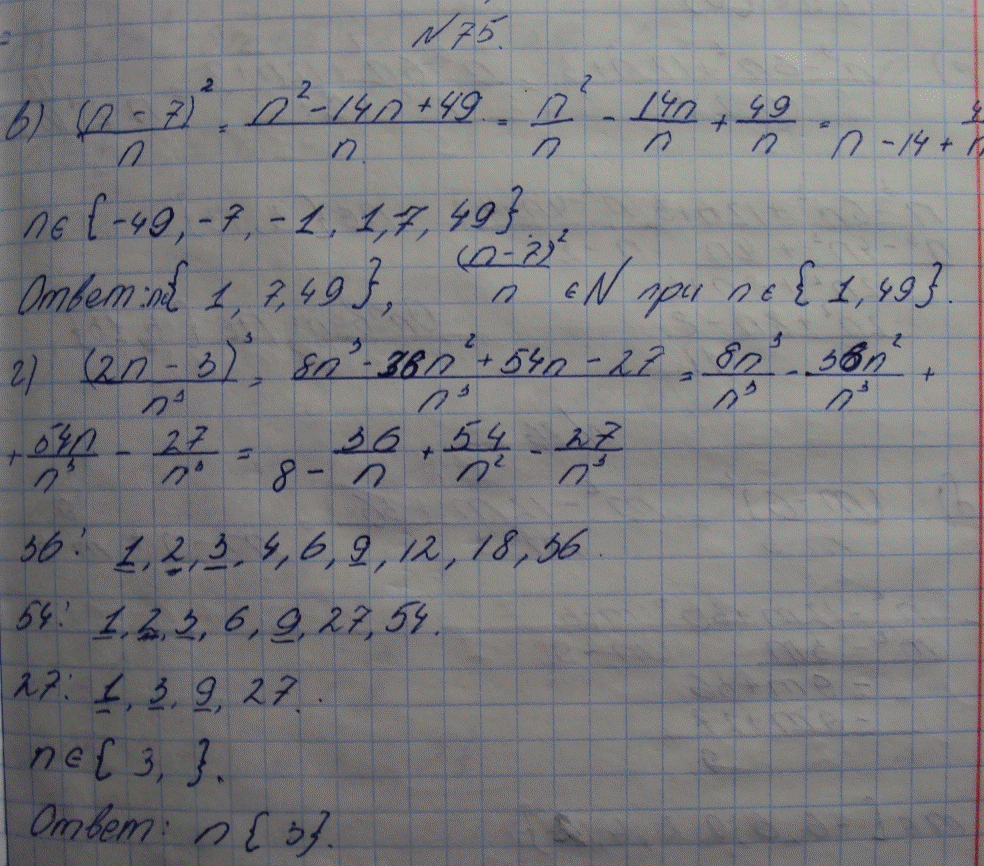 N 75.
в) (n - 7)²/n = n² - 14n + 49/n = n²/n - 14n/n + 49/n = n - 14 + 4/n
n ∈ {-49, -7, -1, 1, 7, 49}.
Ответ: n∈{1, 7, 49}, (n-7)²/n ∈ N при n ∈ {1, 49}.
г) (2n - 3)³/n³ = 8n³ - 36n² + 54n - 27/n³ = 8n³/n³ - 36n²/n³ +
+ 54n/n³ - 27/n³ = 8 - 36/n + 54/n² - 27/n³
36: 1, 2, 3, 4, 6, 9, 12, 18, 36.
54: 1, 2, 3, 6, 9, 27, 54.
27: 1, 3, 9, 27.
n ∈ { 3, }.
Ответ: n { 3}.